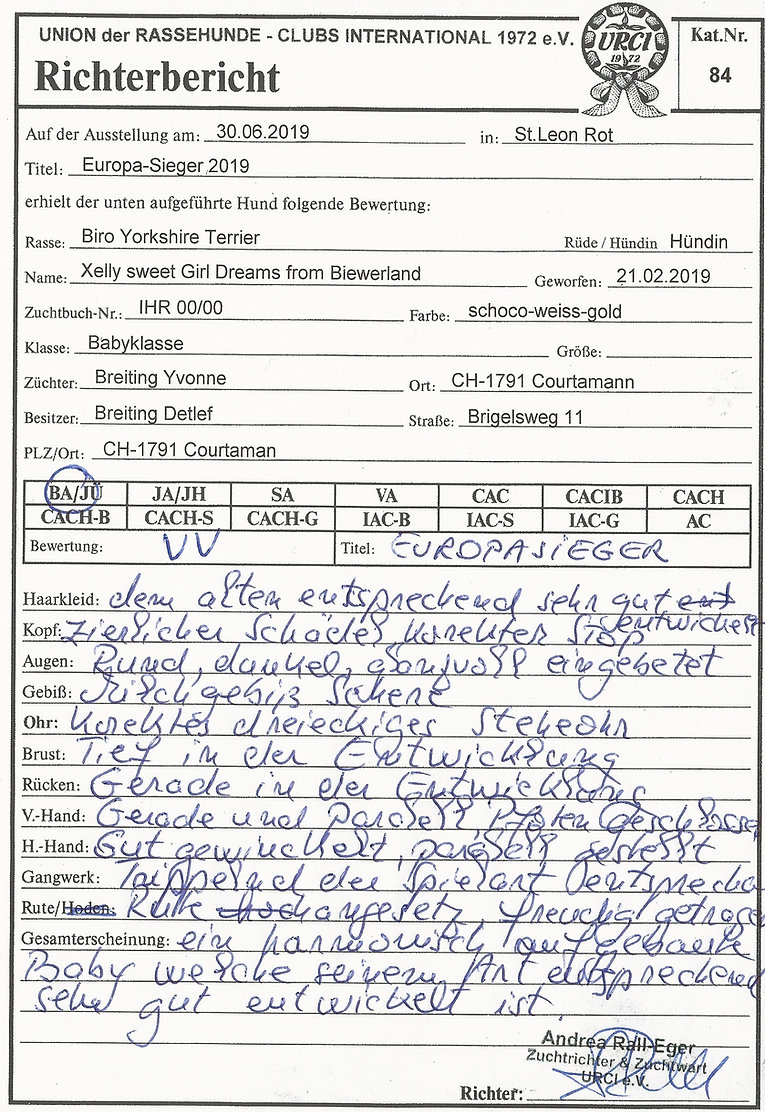 UNION der RASSEHUNDE - CLUBS INTERNATIONAL 1972 e.V.
URCI
1972
Kat.Nr.
Richterbericht
84
Auf der Ausstellung am: 30.06.2019 in: St.Leon Rot
Titel: Europa-Sieger 2019
erhielt der unten aufgeführte Hund folgende Bewertung:
Rasse: Biro Yorkshire Terrier Rüde / Hündin Hündin
Name: Xelly sweet Girl Dreams from Biewerland Geworfen: 21.02.2019
Zuchtbuch-Nr.: IHR 00/00 Farbe: schoco-weiss-gold
Klasse: Babyklasse Größe:
Züchter: Breiting Yvonne Ort: CH-1791 Courtamann
Besitzer: Breiting Detlef Straße: Brigelsweg 11
PLZ/Ort: CH-1791 Courtaman
BA/JÜ JA/JH SA VA CAC CACIB CACH
CACH-B CACH-S CACH-G IAC-B IAC-S IAC-G AC
Bewertung: VV Titel: EUROPASIEGER
Haarkleid: dem alter entsprechend sehr gut ent
entwickelt
Kopf: Zierlicher Schädel, korekter Stop
Augen: Rund, dunkel, glanzvoll eingebetet
Gebiß: Milchgebiß Schere
Ohr: Korektes dreieckiges Stehohr
Brust: Tief in der Entwicklung
Rücken: Gerade in der Entwicklung
V.-Hand: Gerade und Paralell Pfoten Geschlossen
H.-Hand: Gut gewinckelt, paralell gestellt
Gangwerk: Trippelnd der Spielart
Rute/Hoden: Rute hochangesetz, freudig getragen
Gesamterscheinung: ein harmonisch aufgebaute
Baby welche seinem Art entsprechend
sehr gut entwickelt ist.
Andrea Rall-Eger
Zuchtrichter & Zuchtwart
URCI e.V.
Richter: